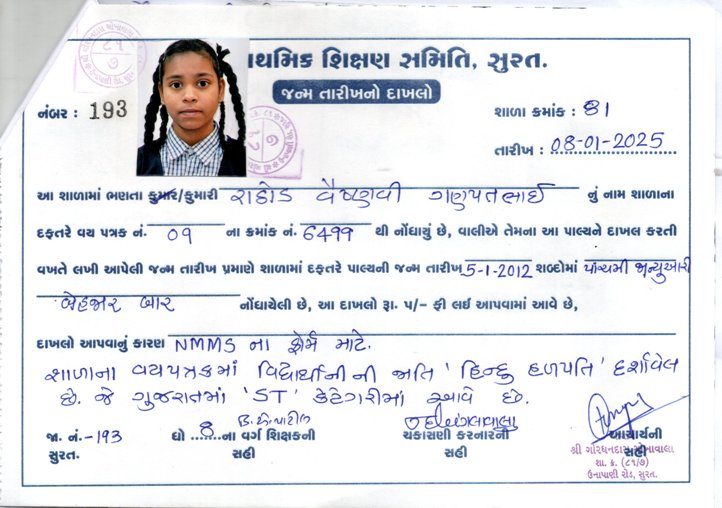 પ્રાથમિક શિક્ષણ સમિતિ, સુરત.
જન્મ તારીખનો દાખલો
નંબર : 193
શાળા ક્રમાંક : 81
તારીખ : 08-01-2025
આ શાળામાં ભણતા કુમાર/કુમારી રાઠોડ વૈષ્ણવી ગણપતભાઈ નું નામ શાળાના
દફતરે વય પત્રક નં. 09 ના ક્રમાંક નં. 6499 થી નોંધાયું છે, વાલીએ તેમના આ પાલ્યને દાખલ કરતી
વખતે લખી આપેલી જન્મ તારીખ પ્રમાણે શાળામાં દફતરે પાલ્યની જન્મ તારીખ 5-1-2012 શબ્દોમાં પાંચમી જાન્યુઆરી
બેહજાર બાર નોંધાયેલી છે, આ દાખલો રૂા. ૫/- ફી લઈ આપવામાં આવે છે,
દાખલો આપવાનું કારણ NMMS ના ફોર્મ માટે.
શાળાના વયપત્રકમાં વિદ્યાર્થીની ની જાતિ 'હિન્દુ હળપતિ' દર્શાવેલ
છે. જે ગુજરાતમાં 'ST' કેટેગરીમાં આવે છે.
જા. નં.-193
સુરત.
ધો 8 ના વર્ગ શિક્ષકની
સહી
ચકાસણી કરનારની
સહી
આચાર્યની
સહી
શ્રી ગોરધનદાસ ચોખાવાલા
શા. ક્ર. (૮૧/૭)
ઉનાપાણી રોડ, સુરત.